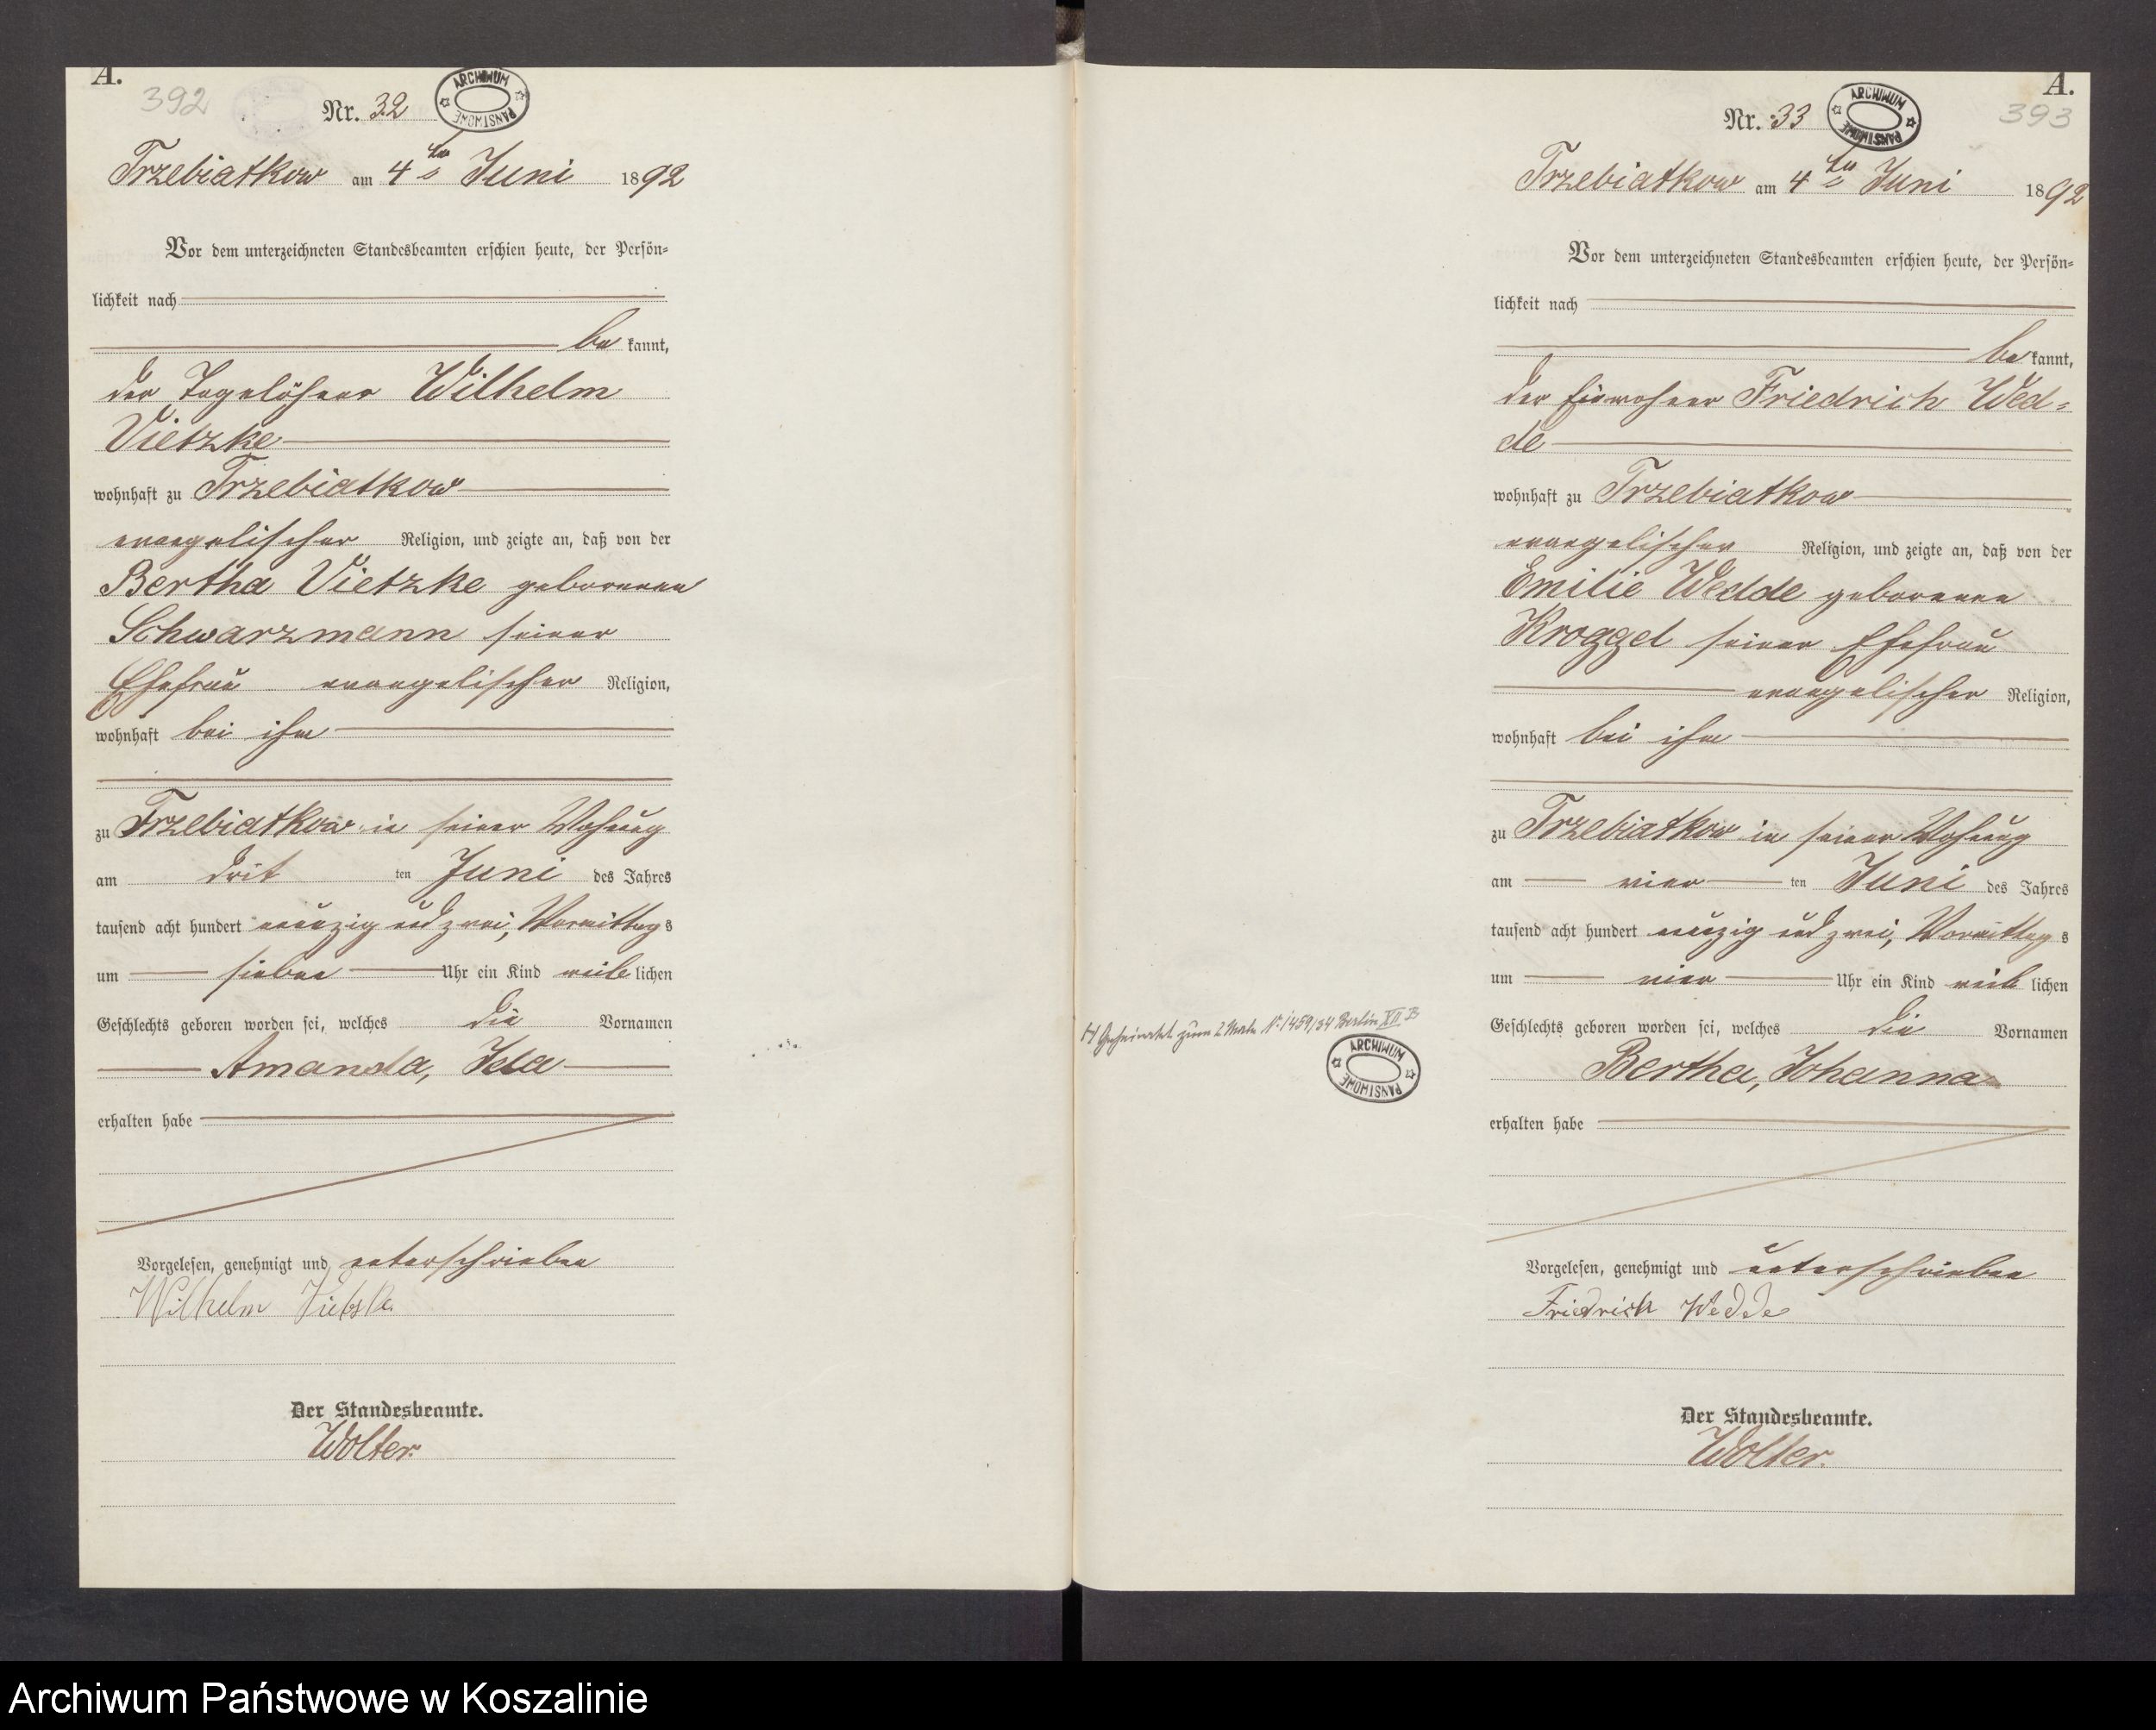 A.
392
Nr. 32
ARCHIWUM PAŃSTWOWE
Trzebiatkow am 4ten Juni 1892
Vor dem unterzeichneten Standesbeamten erschien heute, der Persön-
lichkeit nach
be kannt,
der Tagelöhner Wilhelm
Vietzke
wohnhaft zu Trzebiatkow
evangelischer Religion, und zeigte an, daß von der
Bertha Vietzke geborenen
Schwarzmann seiner
Ehefrau evangelischer Religion,
wohnhaft bei ihm
zu Trzebiatkow in seiner Wohnung
am drit ten Juni des Jahres
tausend acht hundert neunzig und zwei, Vormittags
um sieben Uhr ein Kind weiblichen
Geschlechts geboren worden sei, welches die Vornamen
Amanda, Ida
erhalten habe
Vorgelesen, genehmigt und unterschrieben
Wilhelm Vietzke
Der Standesbeamte.
Wolter.
A.
393
Nr. 33
ARCHIWUM PAŃSTWOWE
Trzebiatkow am 4ten Juni 1892
Vor dem unterzeichneten Standesbeamten erschien heute, der Persön-
lichkeit nach
be kannt,
der Einwohner Friedrich Wed-
de
wohnhaft zu Trzebiatkow
evangelischer Religion, und zeigte an, daß von der
Emilie Wedde geborenen
Kroggel seiner Ehefrau
evangelischer Religion,
wohnhaft bei ihm
zu Trzebiatkow in seiner Wohnung
am vier ten Juni des Jahres
tausend acht hundert neunzig und zwei, Vormittags
um vier Uhr ein Kind weib lichen
Geschlechts geboren worden sei, welches die Vornamen
Bertha, Johanna
erhalten habe
Vorgelesen, genehmigt und unterschrieben
Friedrich Wedde
Der Standesbeamte.
Wolter.
Geheiratet zum 2 Male Nr. 1459/34 Berlin XII B
ARCHIWUM PAŃSTWOWE
Archiwum Państwowe w Koszalinie